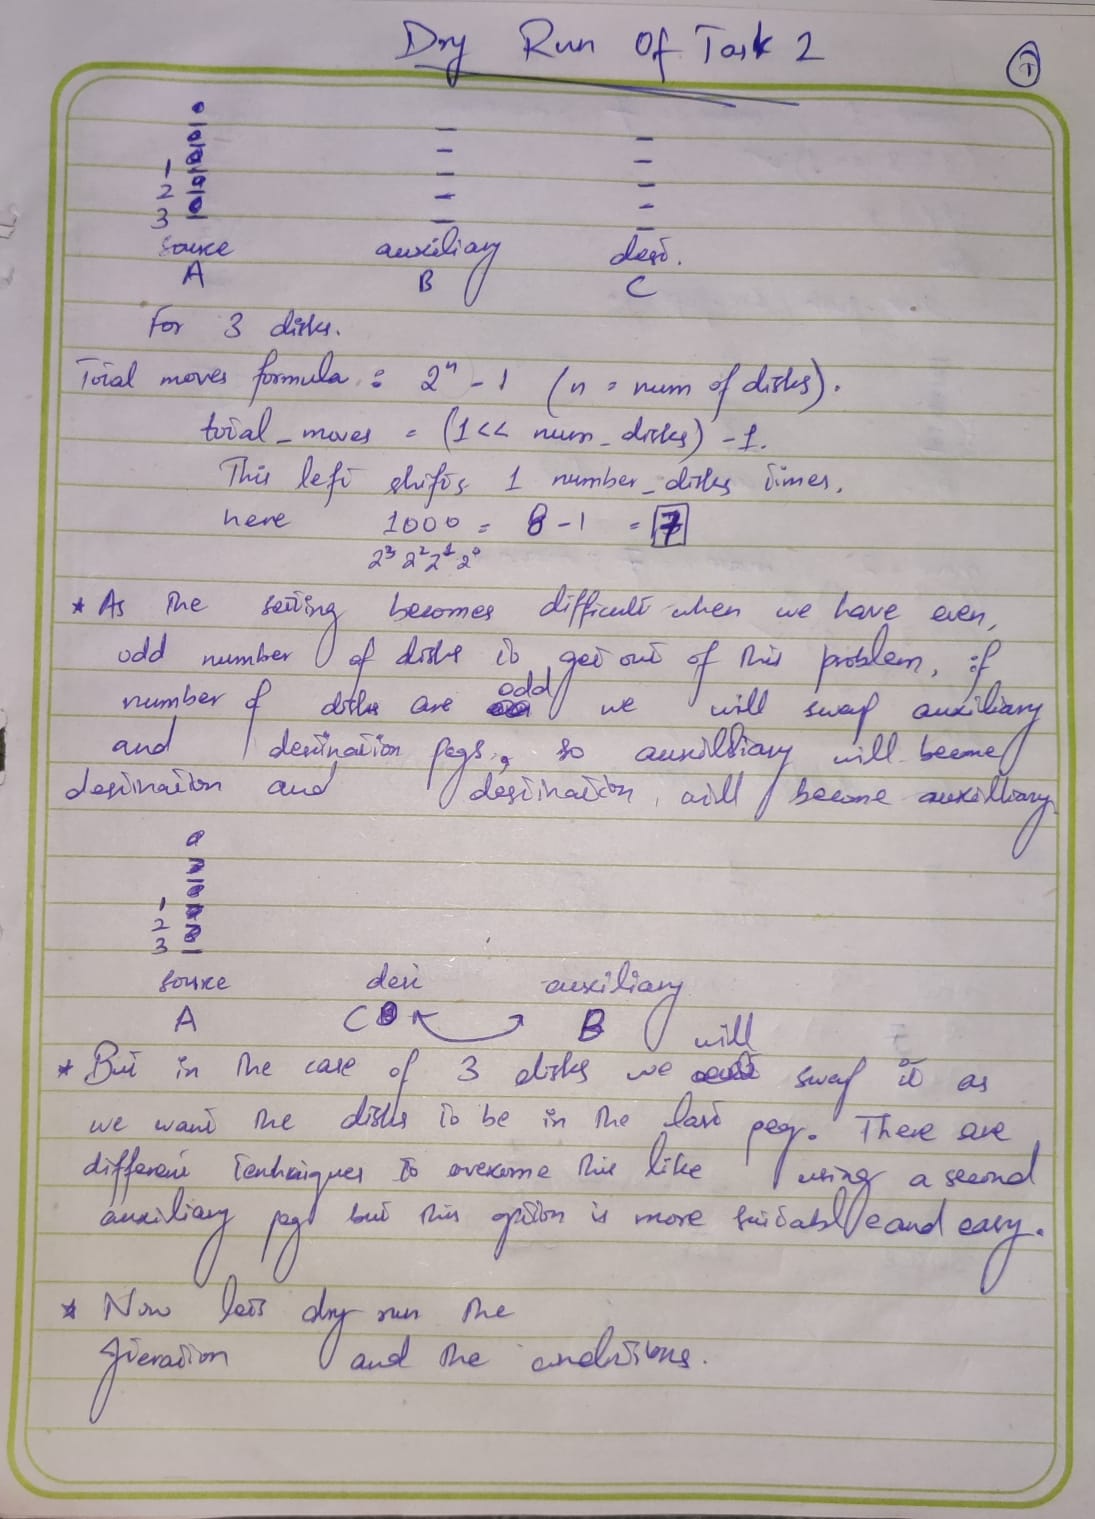 Dry Run Of Task 2
1
1
2
3
source auxiliary dest.
A B C
For 3 disks.
Total moves formula : 2^n - 1 (n = num of disks).
total_moves = (1<< num_disks) -1.
This left shifts 1 number_disks times.
here 1000 = 8 - 1 = 7
2^3 2^2 2^1 2^0
* As the setting becomes difficult when we have even,
odd number of disks to get out of this problem, if
number of disks are odd we will swap auxiliary
and destination pegs, so auxilliary will become
destination and destination will become auxilliary.
1
2
3
source dest auxiliary
A C B
* But in the case of 3 disks we will swap it as
we want the disks to be in the last peg. There are
different tenhniques to overcome this like using a second
auxiliary peg but this option is more suitable and easy.
* Now lets dry run the
iteration and the conditions.